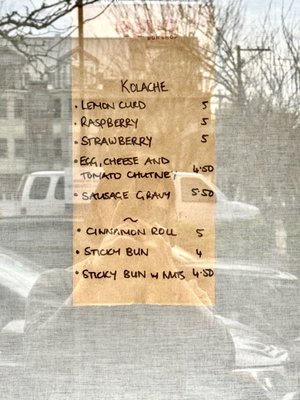 KOLACHE
• LEMON CURD 5
• RASPBERRY 5
• STRAWBERRY 5
• EGG, CHEESE AND
TOMATO CHUTNEY 4.50
• SAUSAGE GRAVY 5.50
~
• CINNAMON ROLL 5
• STICKY BUN 4
• STICKY BUN W NUTS 4.50